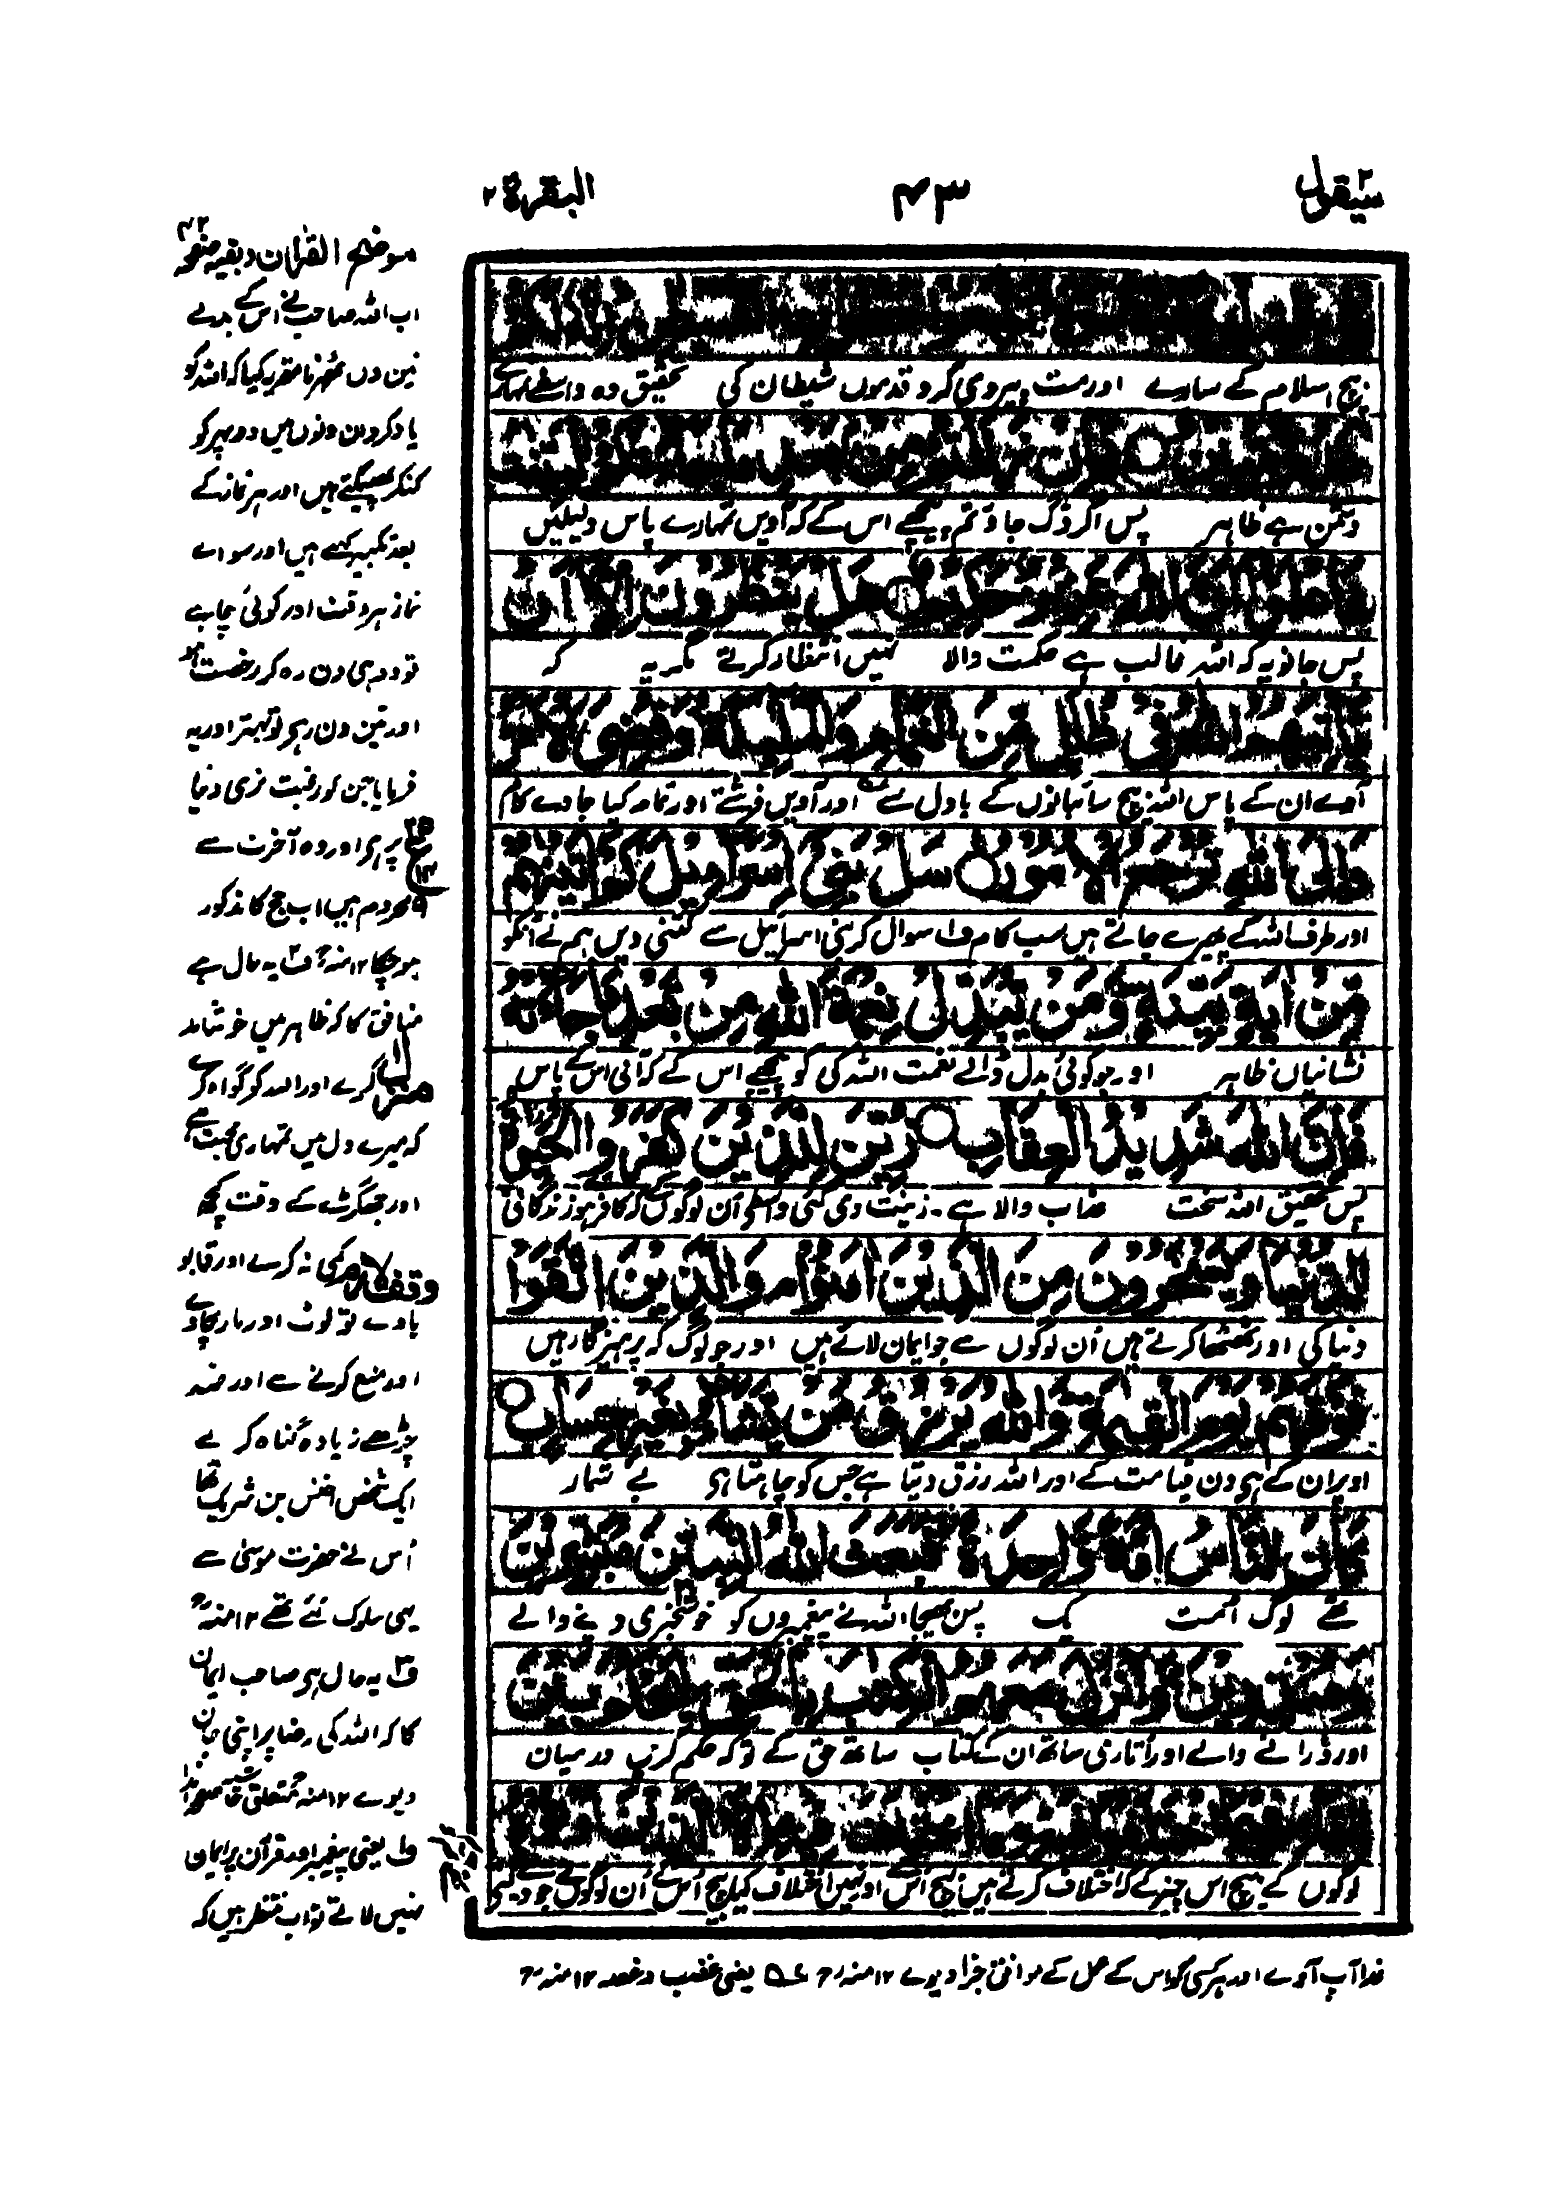 سيقول ٢
٤٣
البقرة ٢
بیچ اسلام کے سارے اور مت پیروی کرو قدموں شیطان کی تحقیق وہ واسطے تمہارے
دشمن ہے ظاہر پس اگر ڈگ جاؤ تم پیچھے اس کے کہ آویں تمہارے پاس دلیلیں
فاعلموا ان الله عزيز حكيم ○ هل ينظرون الا ان
پس جانو یہ کہ اللہ غالب ہے حکمت والا نہیں انتظار کرتے مگر یہ کہ
ياتيهم الله في ظلل من الغمام والملئكة وقضي الامر
آوے ان کے پاس اللہ بیچ سائبانوں کے بادل سے اور آویں فرشتے اور تمام کیا جاوے کام
والى الله ترجع الامور ○ سل بني اسراءيل كم اتينهم
اور طرف اللہ کے پھیرے جاتے ہیں سب کام ف۱ سوال کر بنی اسرائیل سے کتنی دیں ہم نے انکو
من اية بينة ومن يبدل نعمة الله من بعد ما جاءته
نشانیاں ظاہر اور جو کوئی بدل ڈالے نعمت اللہ کی کو پیچھے اس کے کہ آئی اس کے پاس
فان الله شديد العقاب ○ زين للذين كفروا الحيوة
پس تحقیق اللہ سخت عذاب والا ہے۔ زینت دی گئی واسطے اُن لوگوں کے کہ کافر ہوئے زندگانی
الدنيا ويسخرون من الذين امنوا والذين اتقوا
دنیا کی اور ٹھٹھا کرتے ہیں اُن لوگوں سے جو ایمان لائے ہیں اور جو لوگ کہ پرہیزگار ہیں
فوقهم يوم القيمة والله يرزق من يشاء بغير حساب ○
اوپر ان کے ہی دن قیامت کے اور اللہ رزق دیتا ہے جس کو چاہتا ہی بے شمار
كان الناس امة واحدة فبعث الله النبين مبشرين
تھے لوگ اُمت یک پس بھیجا اللہ نے پیغمبروں کو خوشخبری دینے والے
ومنذرين وانزل معهم الكتب بالحق ليحكم بين
اور ڈرانے والے اور اُتاری ساتھ ان کے کتاب ساتھ حق کے تو کہ حکم کرے درمیان
لوگوں کے بیچ اس چیز کے کہ اختلاف کرتے ہیں بیچ اُس کے اور نہیں اختلاف کیا بیچ اُس کے مگر اُن لوگوں نے جو دیے گئے
موضح القرآن بقیہ صفحہ ٤٢
اب اللہ صاحب نے اس کے بدلے
تین دن ٹھہرنا مقرر کیا کہ اللہ کو
یاد کرو ان دنوں میں دوپہر کو
کنکر پھینکتے ہیں اور ہر نماز کے
بعد تکبیر کہتے ہیں اور سوائے
نماز ہر وقت اور کوئی چاہے
تو دو ہی دن رہ کر رخصت ہو
اور تین دن رہے تو بہتر اور یہ
فرمایا جن کو رغبت نری دنیا
پر ہی اور وہ آخرت سے
محروم ہیں اب حج کا مذکور
ہو چکا ۱۲ منہ ف۲ یہ حال ہے
منافق کا کہ ظاہر میں خوشامد
کرے اور اللہ کو گواہ کرے
کہ میرے دل میں تمہاری محبت ہے
اور جھگڑے کے وقت کچھ
کمی نہ کرے اور قابو
پاوے تو لوٹ اور مار مچاوے
اور منع کرنے سے اور ضد
چڑھے زیادہ گناہ کرے
ایک شخص اخنس بن شریک تھا
اُس نے حضرت موسیٰ سے
یہی سلوک کئے تھے ۱۲ منہ
ف۳ یہ حال ہی صاحب ایمان
کا کہ اللہ کی رضا پر اپنی جان
دیوے ۱۲ منہ متعلق حاشیہ صفحہ ہذا
ف۱ یعنی پیغمبر اور قرآن پر ایمان
نہیں لاتے تو اب منتظر ہیں کہ
خدا آپ آوے اور ہر کسی کو اس کے عمل کے موافق جزا دیوے ۱۲ منہ یعنی غضب و غصہ ۱۲ منہ